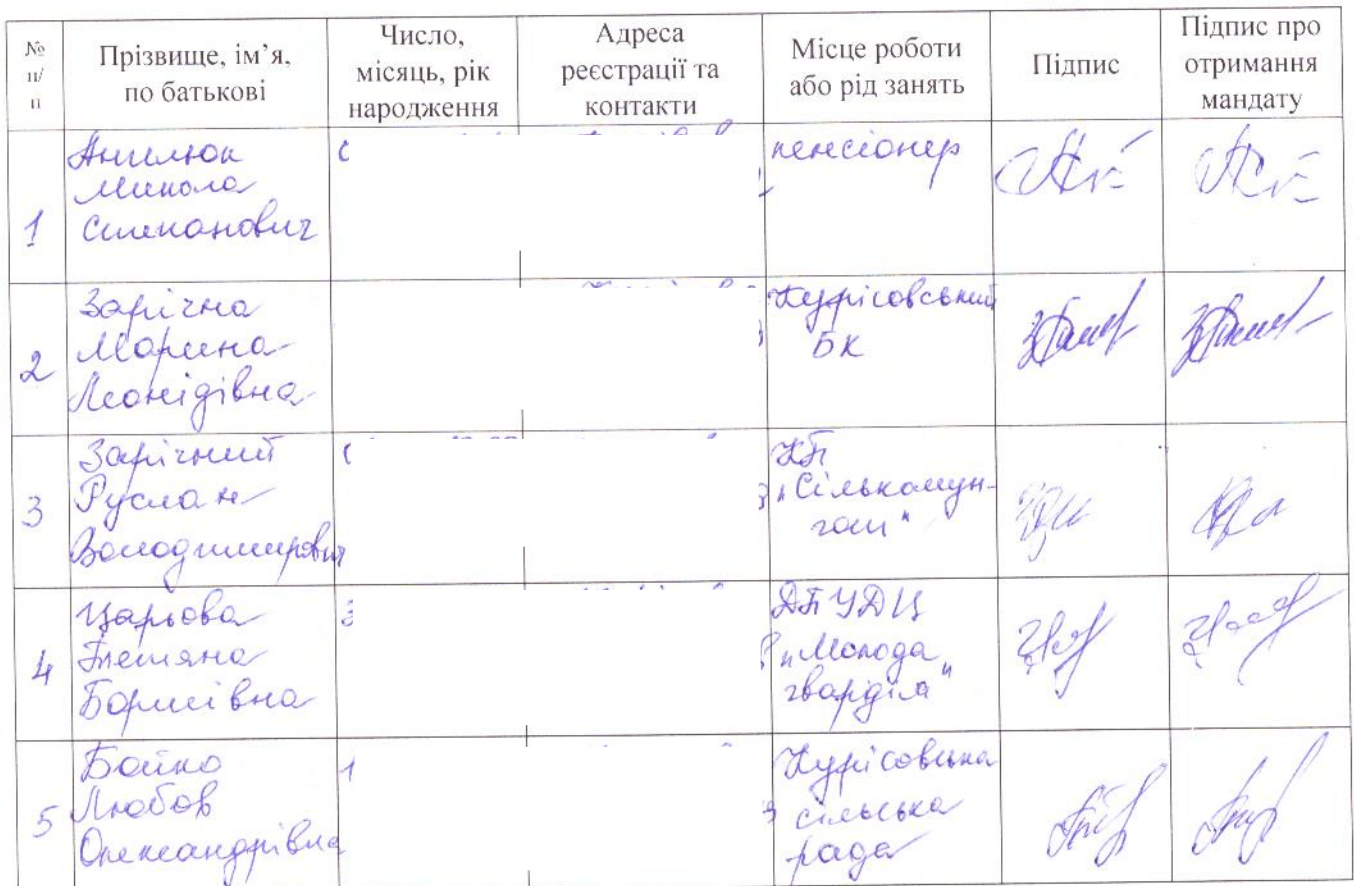 № п/п
Прізвище, ім’я, по батькові
Число, місяць, рік народження
Адреса реєстрації та контакти
Місце роботи або рід занять
Підпис
Підпис про отримання мандату
1
Микола
пенсіонер
2
Зарічна
Марина
Леонідівна
Курісовський
БК
3
Зарічний
Руслан
Володимирович
КП
"Сількомун-
госп"
4
Царьова
Тетяна
Борисівна
ДП УДЦ
"Молода
гвардія"
5
Бойко
Любов
Олександрівна
Курісовська
сільська
рада